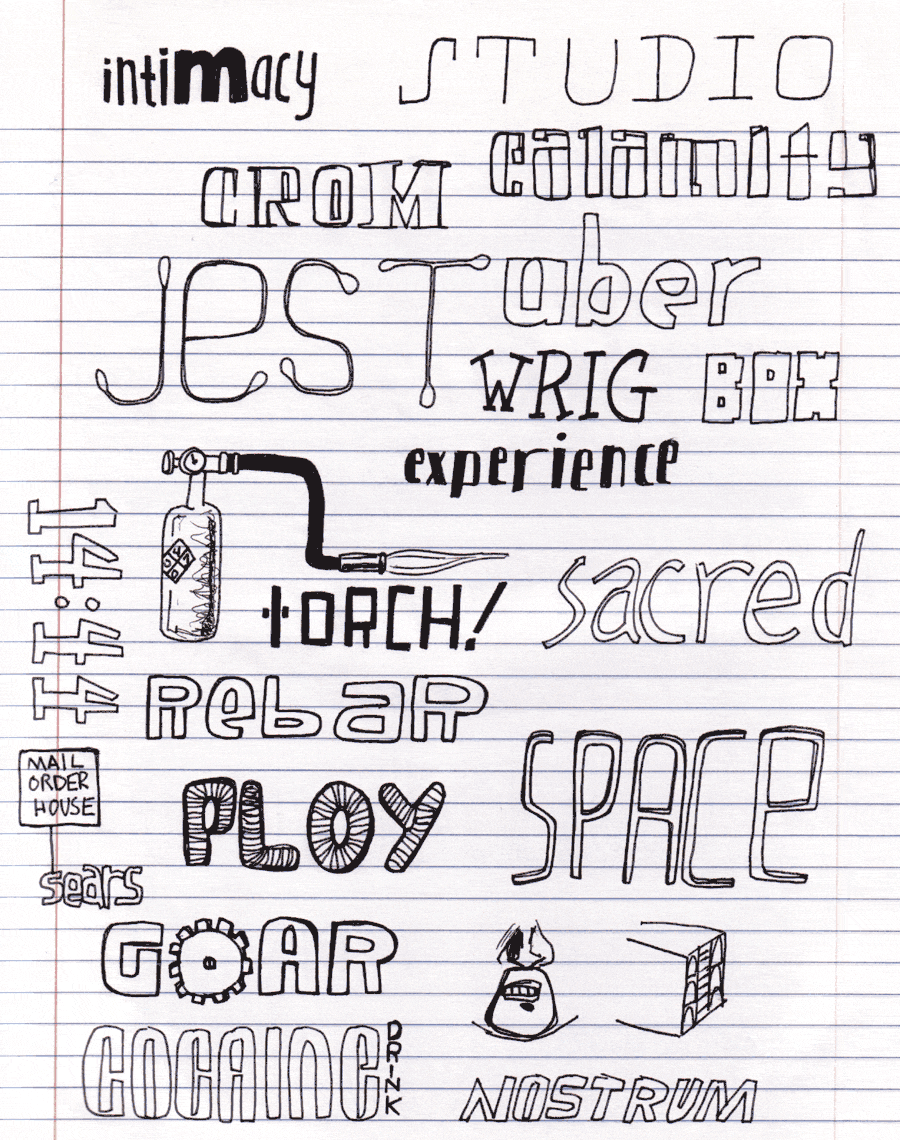 intimacy
STUDIO
calamity
CROM
jesT
uber
WRIG
BOX
experience
14:44
tORCH!
sacred
RebaR
SPACE
MAIL
ORDER
HOUSE
PLOY
sears
GOAR
COCAINE
DRINK
NOSTRUM